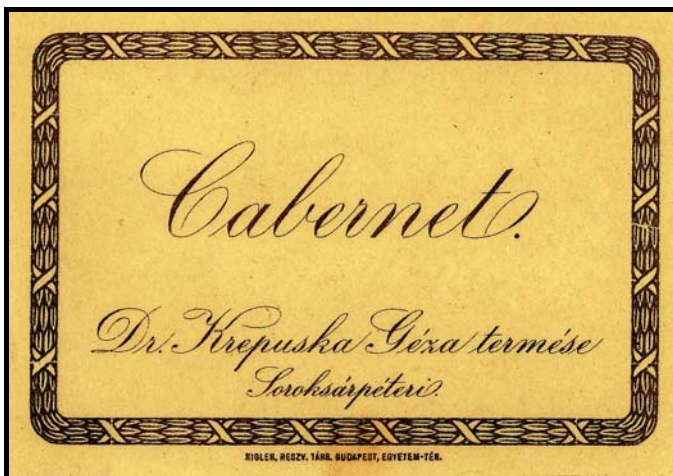 Cabernet.
Dr. Krepuska Géza termése
Soroksárpéteri.
RIGLER, RESZV. TÁRS. BUDAPEST, EGYETEM-TÉR.